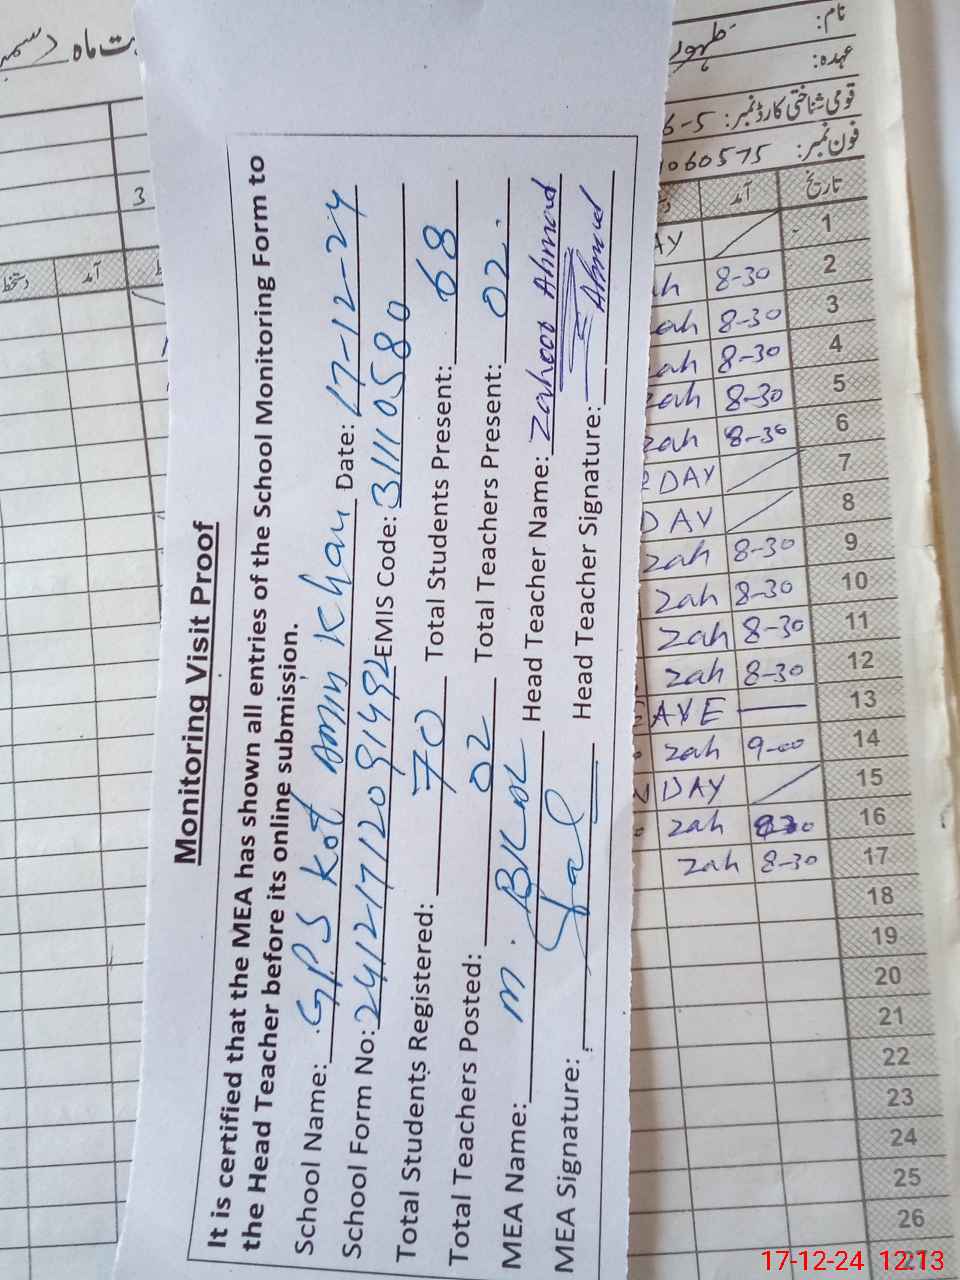 Monitoring Visit Proof
It is certified that the MEA has shown all entries of the School Monitoring Form to
the Head Teacher before its online submission.
School Name: G.P.S Kot Amin Khan Date: 17-12-24
School Form No: EMIS Code: 31110580
Total Students Registered: 70 Total Students Present: 68
Total Teachers Posted: 02 Total Teachers Present: 02.
MEA Name: M. Head Teacher Name: Zahoor Ahmad
MEA Signature: Head Teacher Signature: Ahmad
ماہ دسمبر
نام: ظہور
عہدہ:
قومی شناختی کارڈ نمبر: 6-5
فون نمبر: 1060575
3
دستخط آمد
آمد تاریخ
AY 1
ah 8-30 2
zah 8-30 3
zah 8-30 4
zah 8-30 5
zah 8-30 6
DAY 7
DAY 8
zah 8-30 9
zah 8-30 10
zah 8-30 11
zah 8-30 12
AVE 13
zah 9-00 14
DAY 15
zah 8-30 16
zah 8-30 17
18
19
20
21
22
23
24
25
26
27
17-12-24 12:13